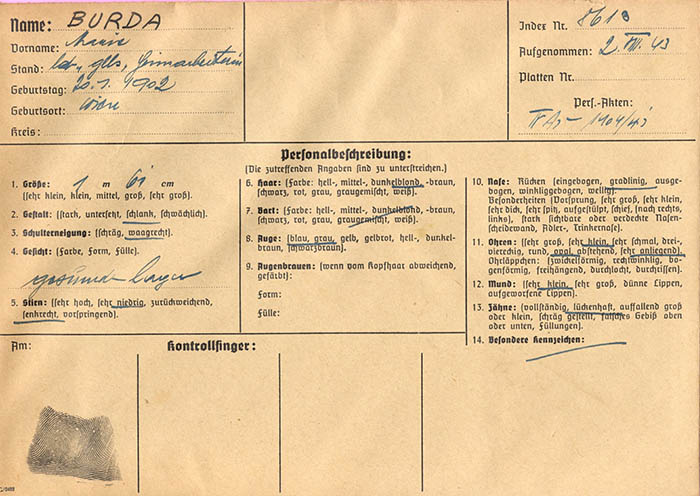 Name: BURDA
Vorname: Marie
Stand: led., glbs,
Geburtstag: 20.1.1902
Geburtsort: Wien
Kreis:
Index Nr. 8613
Aufgenommen: 2.VIII.43
Platten Nr.
Pers.-Akten:
Personalbeschreibung:
(Die zutreffenden Angaben sind zu unterstreichen.)
1. Größe: 1 m 61 cm
(sehr klein, klein, mittel, groß, sehr groß).
2. Gestalt: (stark, untersetzt, schlank, schwächlich).
3. Schulterneigung: (schräg, waagrecht).
4. Gesicht: (Farbe, Form, Fülle).
gesund
5. Stirn: (sehr hoch, sehr niedrig, zurückweichend,
senkrecht, vorspringend).
6. Haar: (Farbe: hell-, mittel-, dunkelblond, -braun,
schwarz, rot, grau, graugemischt, weiß).
7. Bart: (Farbe: hell-, mittel-, dunkelblond, -braun,
schwarz, rot, grau, graugemischt, weiß).
8. Auge: (blau, grau, gelb, gelbrot, hell-, dunkel-
braun, schwarzbraun).
9. Augenbrauen: (wenn vom Kopfhaar abweichend,
gefärbt):
Form:
Fülle:
10. Nase: Rücken (eingebogen, gradlinig, ausge-
bogen, winkliggebogen, wellig).
Besonderheiten (Vorsprung, sehr groß, sehr klein,
sehr dick, sehr spin, aufgestülpt, schief, (nach rechts,
links), stark sichtbare oder verdeckte Nasen-
scheidewand, Adler-, Trinkernase).
11. Ohren: (sehr groß, sehr klein, sehr schmal, drei-,
viereckig, rund, oval, abstehend, sehr anliegend).
Ohrläppchen: (zwickelförmig, rechtwinklig, bo-
genförmig, freihängend, durchlocht, durchrissen).
12. Mund: (sehr klein, sehr groß, dünne Lippen,
aufgeworfene Lippen).
13. Zähne: (vollständig, lückenhaft, auffallend groß
oder klein, schräg gestellt, falsches Gebiß oben
oder unten, Füllungen).
14. Besondere Kennzeichen:
Am:
Kontrollfinger: